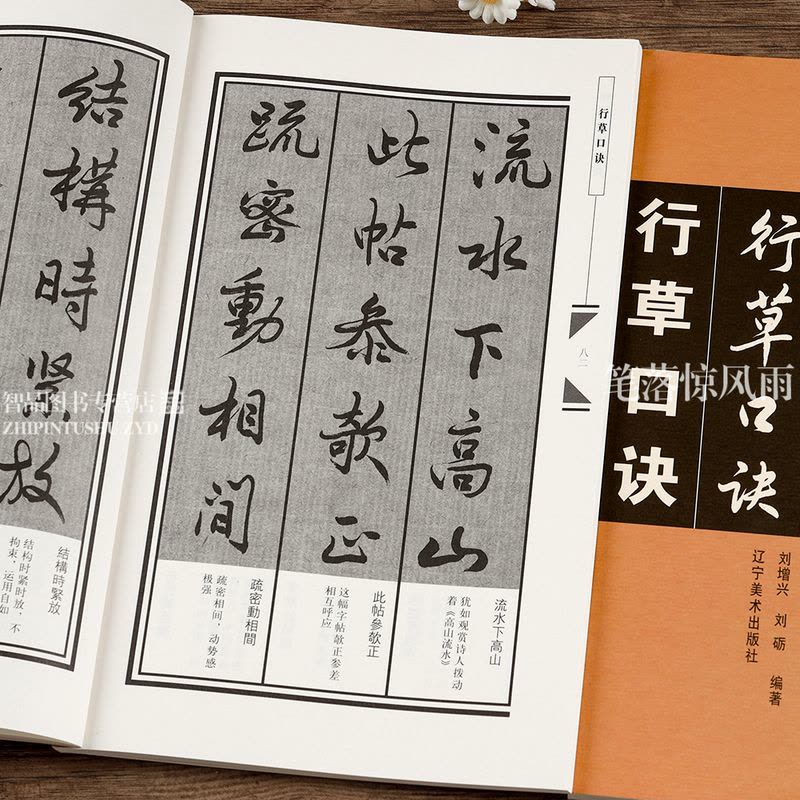 行草口诀
八二
流水下高山
此帖参欹正
疏密動相間
流水下高山
犹如观赏诗人拨动
着《高山流水》
此帖參欹正
这幅字帖欹正参差
相互呼应
疏密動相間
疏密相间，动势感
极强
結構時緊放
結構時緊放
结构时紧时放，不
拘束，运用自如
行草口诀
行草口诀
刘增兴 刘砺 编著
辽宁美术出版社
智品图书专营店
ZHIPINTUSHU.ZYD
笔落惊风雨